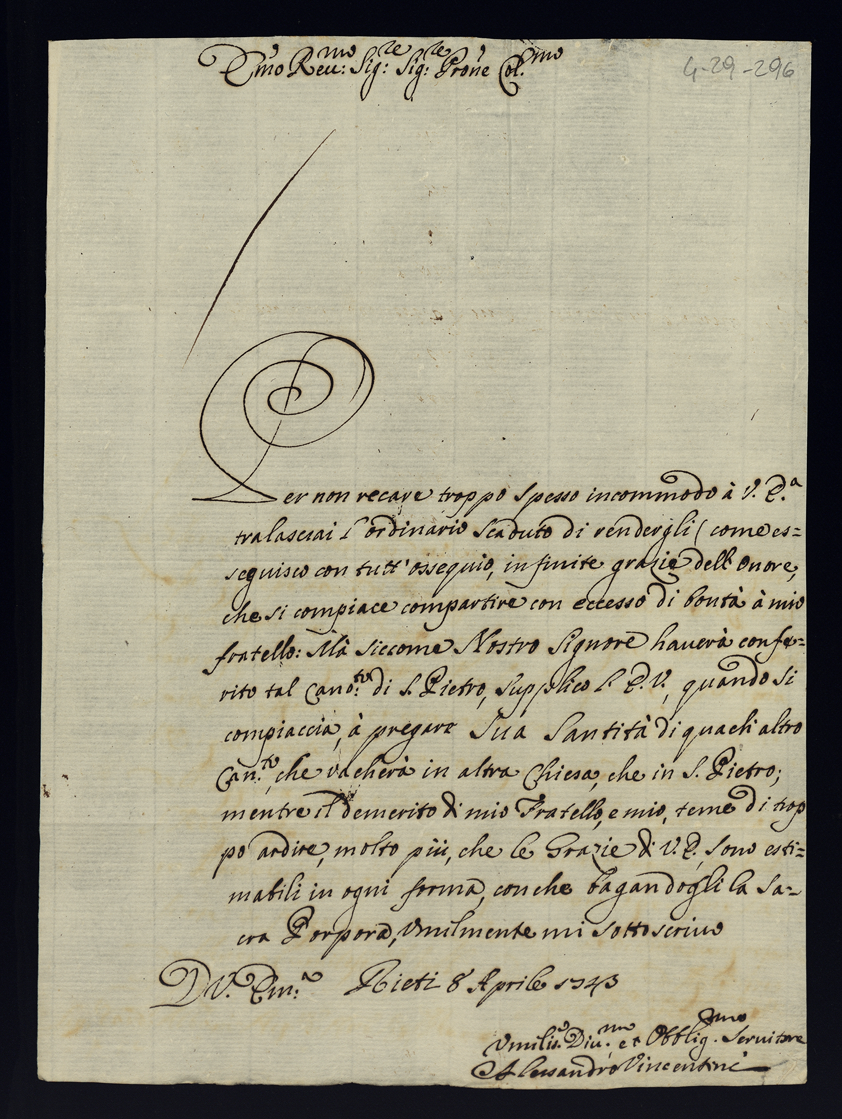 Em̃o Reu:mo Sig:re Sig:re Prone Col:mo
4-29-296
Per non recare troppo spesso incommodo à V. E.a
tralasciai l'ordinario scaduto di rendergli (come es=
seguisco con tutt'ossequio, infinite grazie dell'onore,
che si compiace compartire con eccesso di bontà à mio
fratello: Mà siccome Nostro Signore hauerà confe=
rito tal Cano:to di S. Pietro, supplico l'E.V., quando si
compiaccia, à pregare Sua Santità di qualch'altro
Can:to, che vacherà in altra Chiesa, che in S. Pietro;
mentre il demerito di mio Fratello, e mio, teme di trop
po ardire, molto più, che le Grazie di V.E. sono esti=
mabili in ogni forma, con che bagandogli la Sa=
cra Porpora, Vmilmente mi sottoscriuo
D V. Em:a Rieti 8 Aprile 1743
Vmilis:o Diu:mo et Obblig:mo Seruitore
Alessandro Vincentini